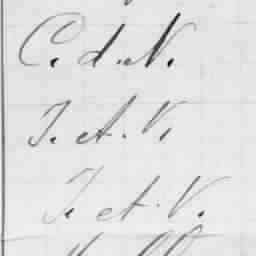 C. d. N.
T. A. V.
T. A. V.